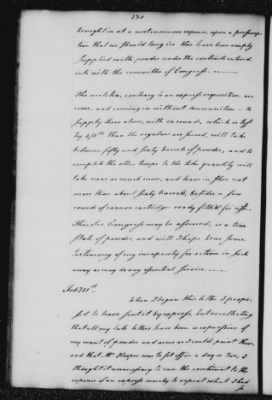 230
brought in at a continuance expence, upon a presump-
tion that we should long ere this have been amply
supplied with powder under the contracts entered
into with the committee of Congress.
The militia, contrary to an express requisition are
come, and coming in without ammunition – to
supply them alone, with 24 rounds, which is less
by 2/5ths than the regulars are served, will take
between fifty and sixty barrels of powder, and to
complete the other troops to the like quantity will
take near as much more, and leave in store not
more than about sixty barrels, besides a few
rounds of cannon cartridge ready filled for use.
This, Sir Congress may be assured, is a true
state of powder, and will I hope bear some
testimony of my incapacity for action in such
away as may do any essential service.
Feb. 21st.
When I began this letter I propo-
sed to have sent it by express, but recollecting
that all my late letters have been as expressive of
my want of powder and arms as I could paint them
and that Mr Hooper was to set off in a day or two, I
thought it unnecessary to run the continent to the
expence of an express merely to repeat what I had
so